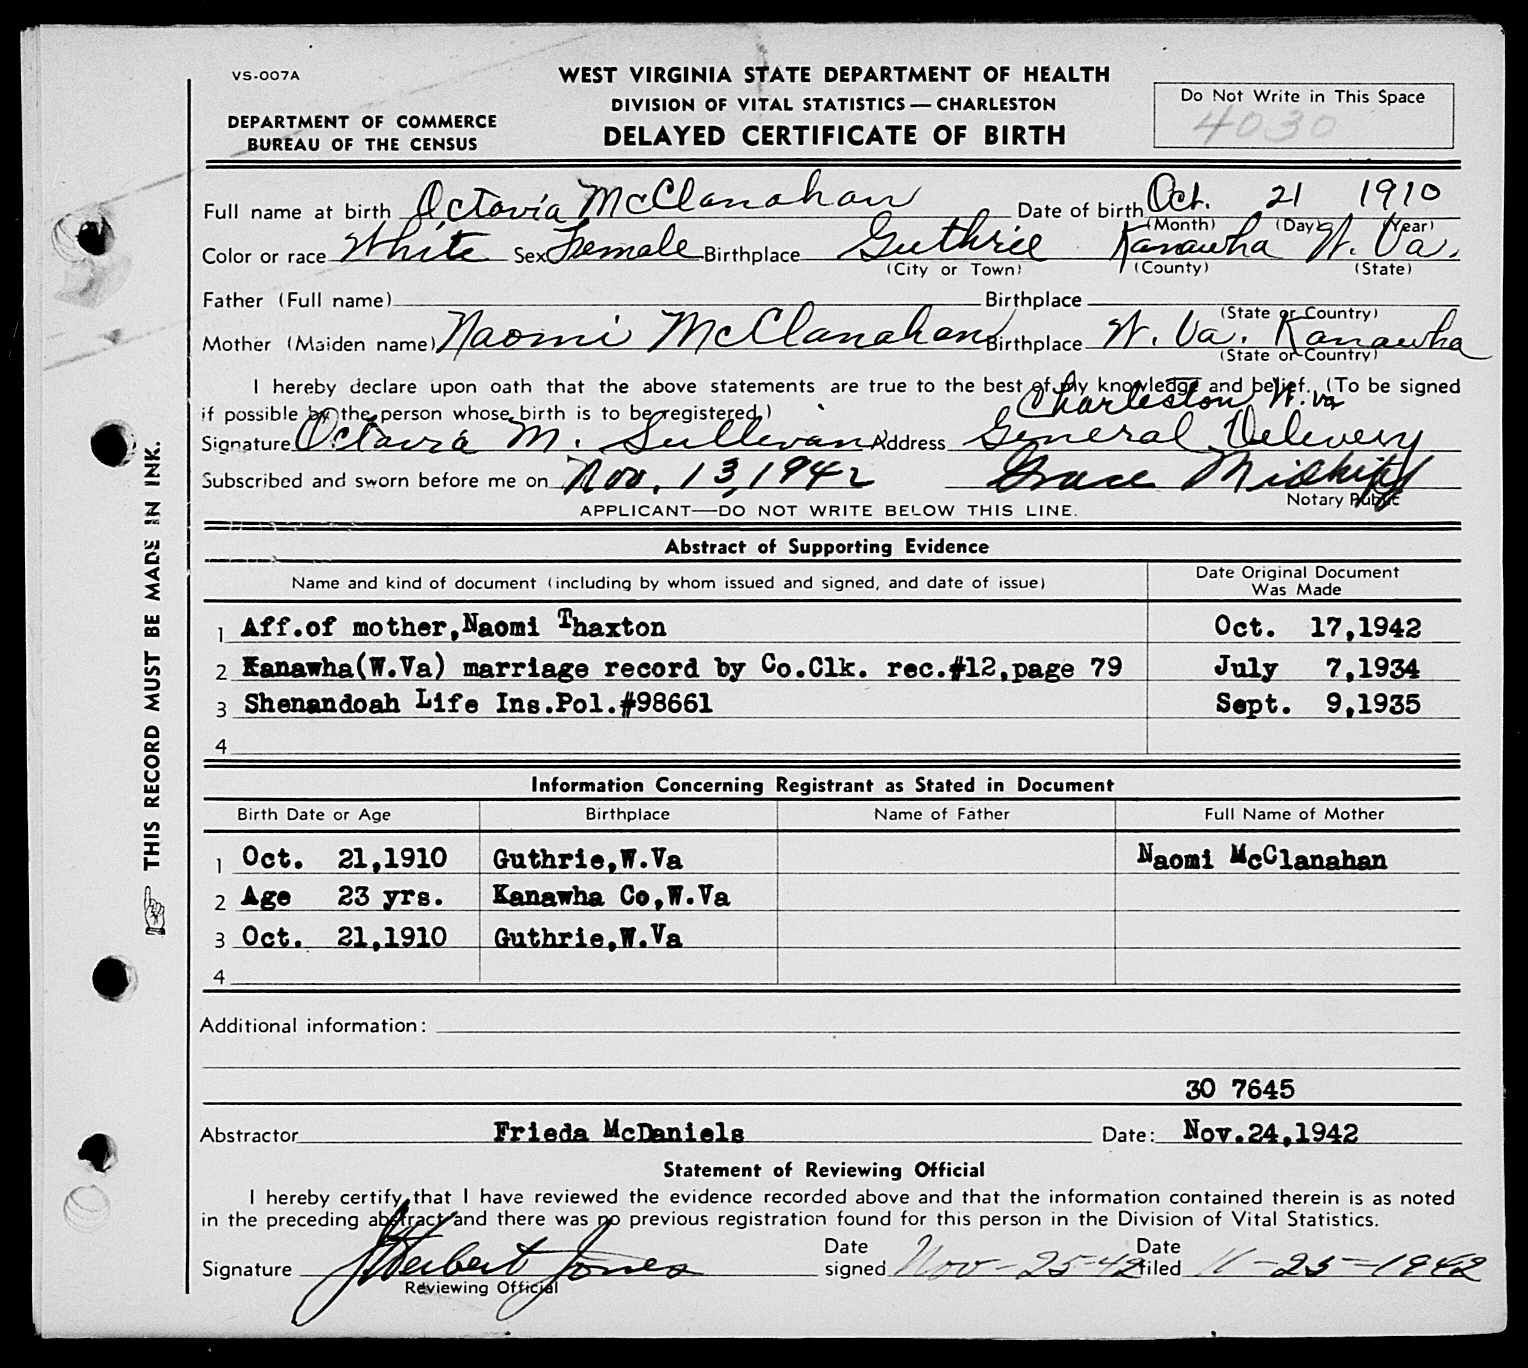 VS-007A
WEST VIRGINIA STATE DEPARTMENT OF HEALTH
DIVISION OF VITAL STATISTICS — CHARLESTON
DEPARTMENT OF COMMERCE
BUREAU OF THE CENSUS
DELAYED CERTIFICATE OF BIRTH
Do Not Write in This Space
4030
Full name at birth Octavia McClanahan Date of birth Oct. 21 1910
(Month) (Day) (Year)
Color or race White Sex Female Birthplace Guthrie Kanawha W. Va.
(City or Town) (County) (State)
Father (Full name) Birthplace
(State or Country)
Mother (Maiden name) Naomi McClanahan Birthplace W. Va. Kanawha
(State or Country)
I hereby declare upon oath that the above statements are true to the best of my knowledge and belief. (To be signed
if possible by the person whose birth is to be registered.) Charleston W. Va
Signature Octavia M. Sullivan Address General Delivery
Subscribed and sworn before me on Nov. 13, 1942 Grace Midkiff
Notary Public
APPLICANT—DO NOT WRITE BELOW THIS LINE.
Abstract of Supporting Evidence
Name and kind of document (including by whom issued and signed, and date of issue) Date Original Document Was Made
1 Aff.of mother,Naomi Thaxton Oct. 17,1942
2 Kanawha(W.Va) marriage record by Co.Clk. rec.#12,page 79 July 7,1934
3 Shenandoah Life Ins.Pol.#98661 Sept. 9,1935
4
Information Concerning Registrant as Stated in Document
Birth Date or Age Birthplace Name of Father Full Name of Mother
1 Oct. 21,1910 Guthrie,W.Va Naomi McClanahan
2 Age 23 yrs. Kanawha Co,W.Va
3 Oct. 21,1910 Guthrie,W.Va
4
Additional information:
30 7645
Abstractor Frieda McDaniels Date: Nov.24,1942
Statement of Reviewing Official
I hereby certify that I have reviewed the evidence recorded above and that the information contained therein is as noted
in the preceding abstract and there was no previous registration found for this person in the Division of Vital Statistics.
Signature Herbert Jones Date signed Nov-25-42 Date filed 11-25-1942
Reviewing Official
THIS RECORD MUST BE MADE IN INK.